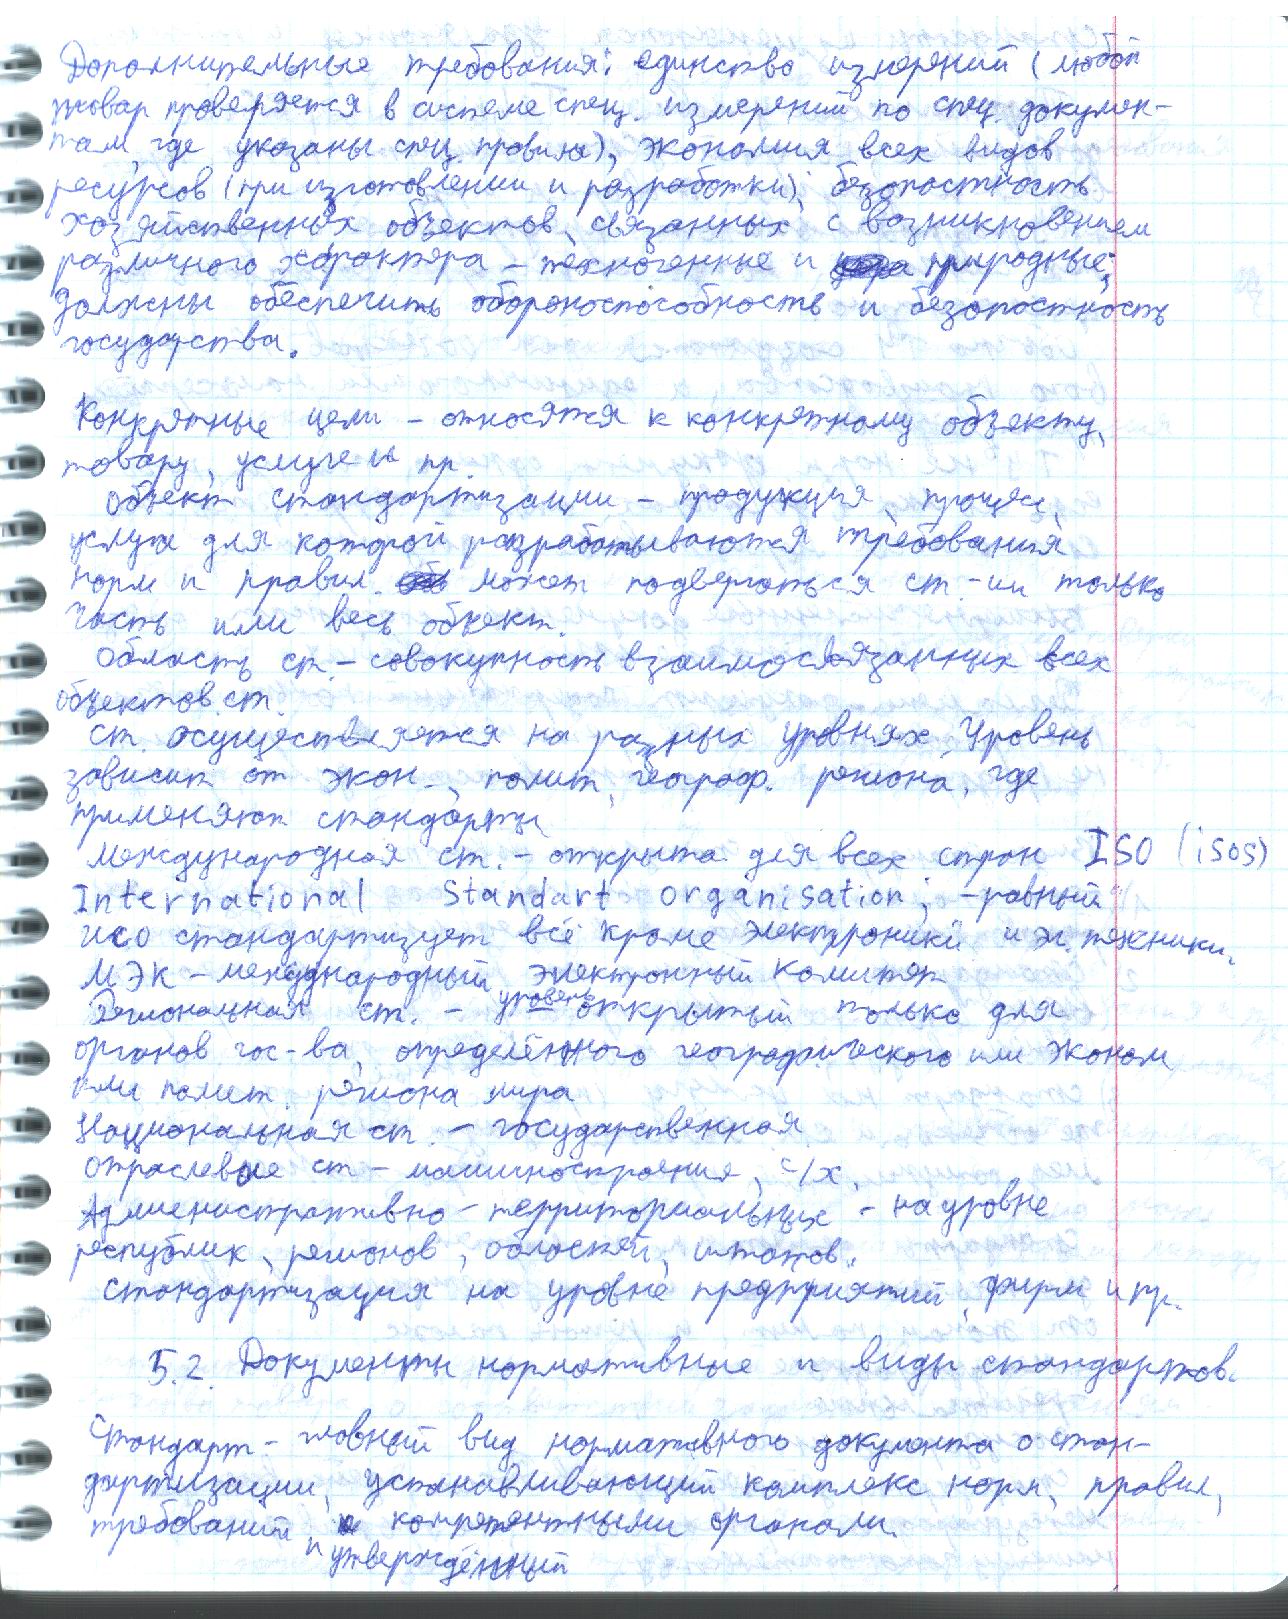 Дополнительные требования: единство измерений (любой
товар проверяется в системе спец. измерений по спец. докумен-
там, где указаны спец. правила), экономия всех видов
ресурсов (при изготовлении и разработки); безопастность
хозяйственных объектов, связанных с возникновением
различного характера – техногенные и природные;
должны обеспечить обороноспособность и безопастность
государства.
Конкретные цели – относятся к конкретному объекту,
товару, услуге и пр.
Объект стандартизации – продукция, процесс,
услуга для которой разрабатываются требования
норм и правил. может подвергаться ст-ии только
часть или весь объект.
Область ст. – совокупность взаимосвязанных всех
объектов ст.
Ст. осуществляется на разных уровнях. Уровень
зависит от экон., полит., географ. региона, где
применяют стандарты
Международная ст. – открыта для всех стран ISO (isos)
International Standart Organisation; – равный
ИСО стандартизует всё кроме электроники и эл. техники.
МЭК – международный электронный комитет
Региональная ст. – уровень открытый только для
органов гос-ва, определённого географического или эконом
или полит. региона мира
Национальная ст. – государственная
Отраслевые ст – машиностроения, с/х.
Админенистративно – территориальных – на уровне
республик, регионов, областей, штатов.
Стандартизация на уровне предприятий, фирм и пр.
5.2. Документы нормативные и виды стандартов.
Стандарт – главный вид нормативного документа о стан-
дартизации, устанавливающий комплекс норм, правил,
требований и компетентными органами.
и утверждённый